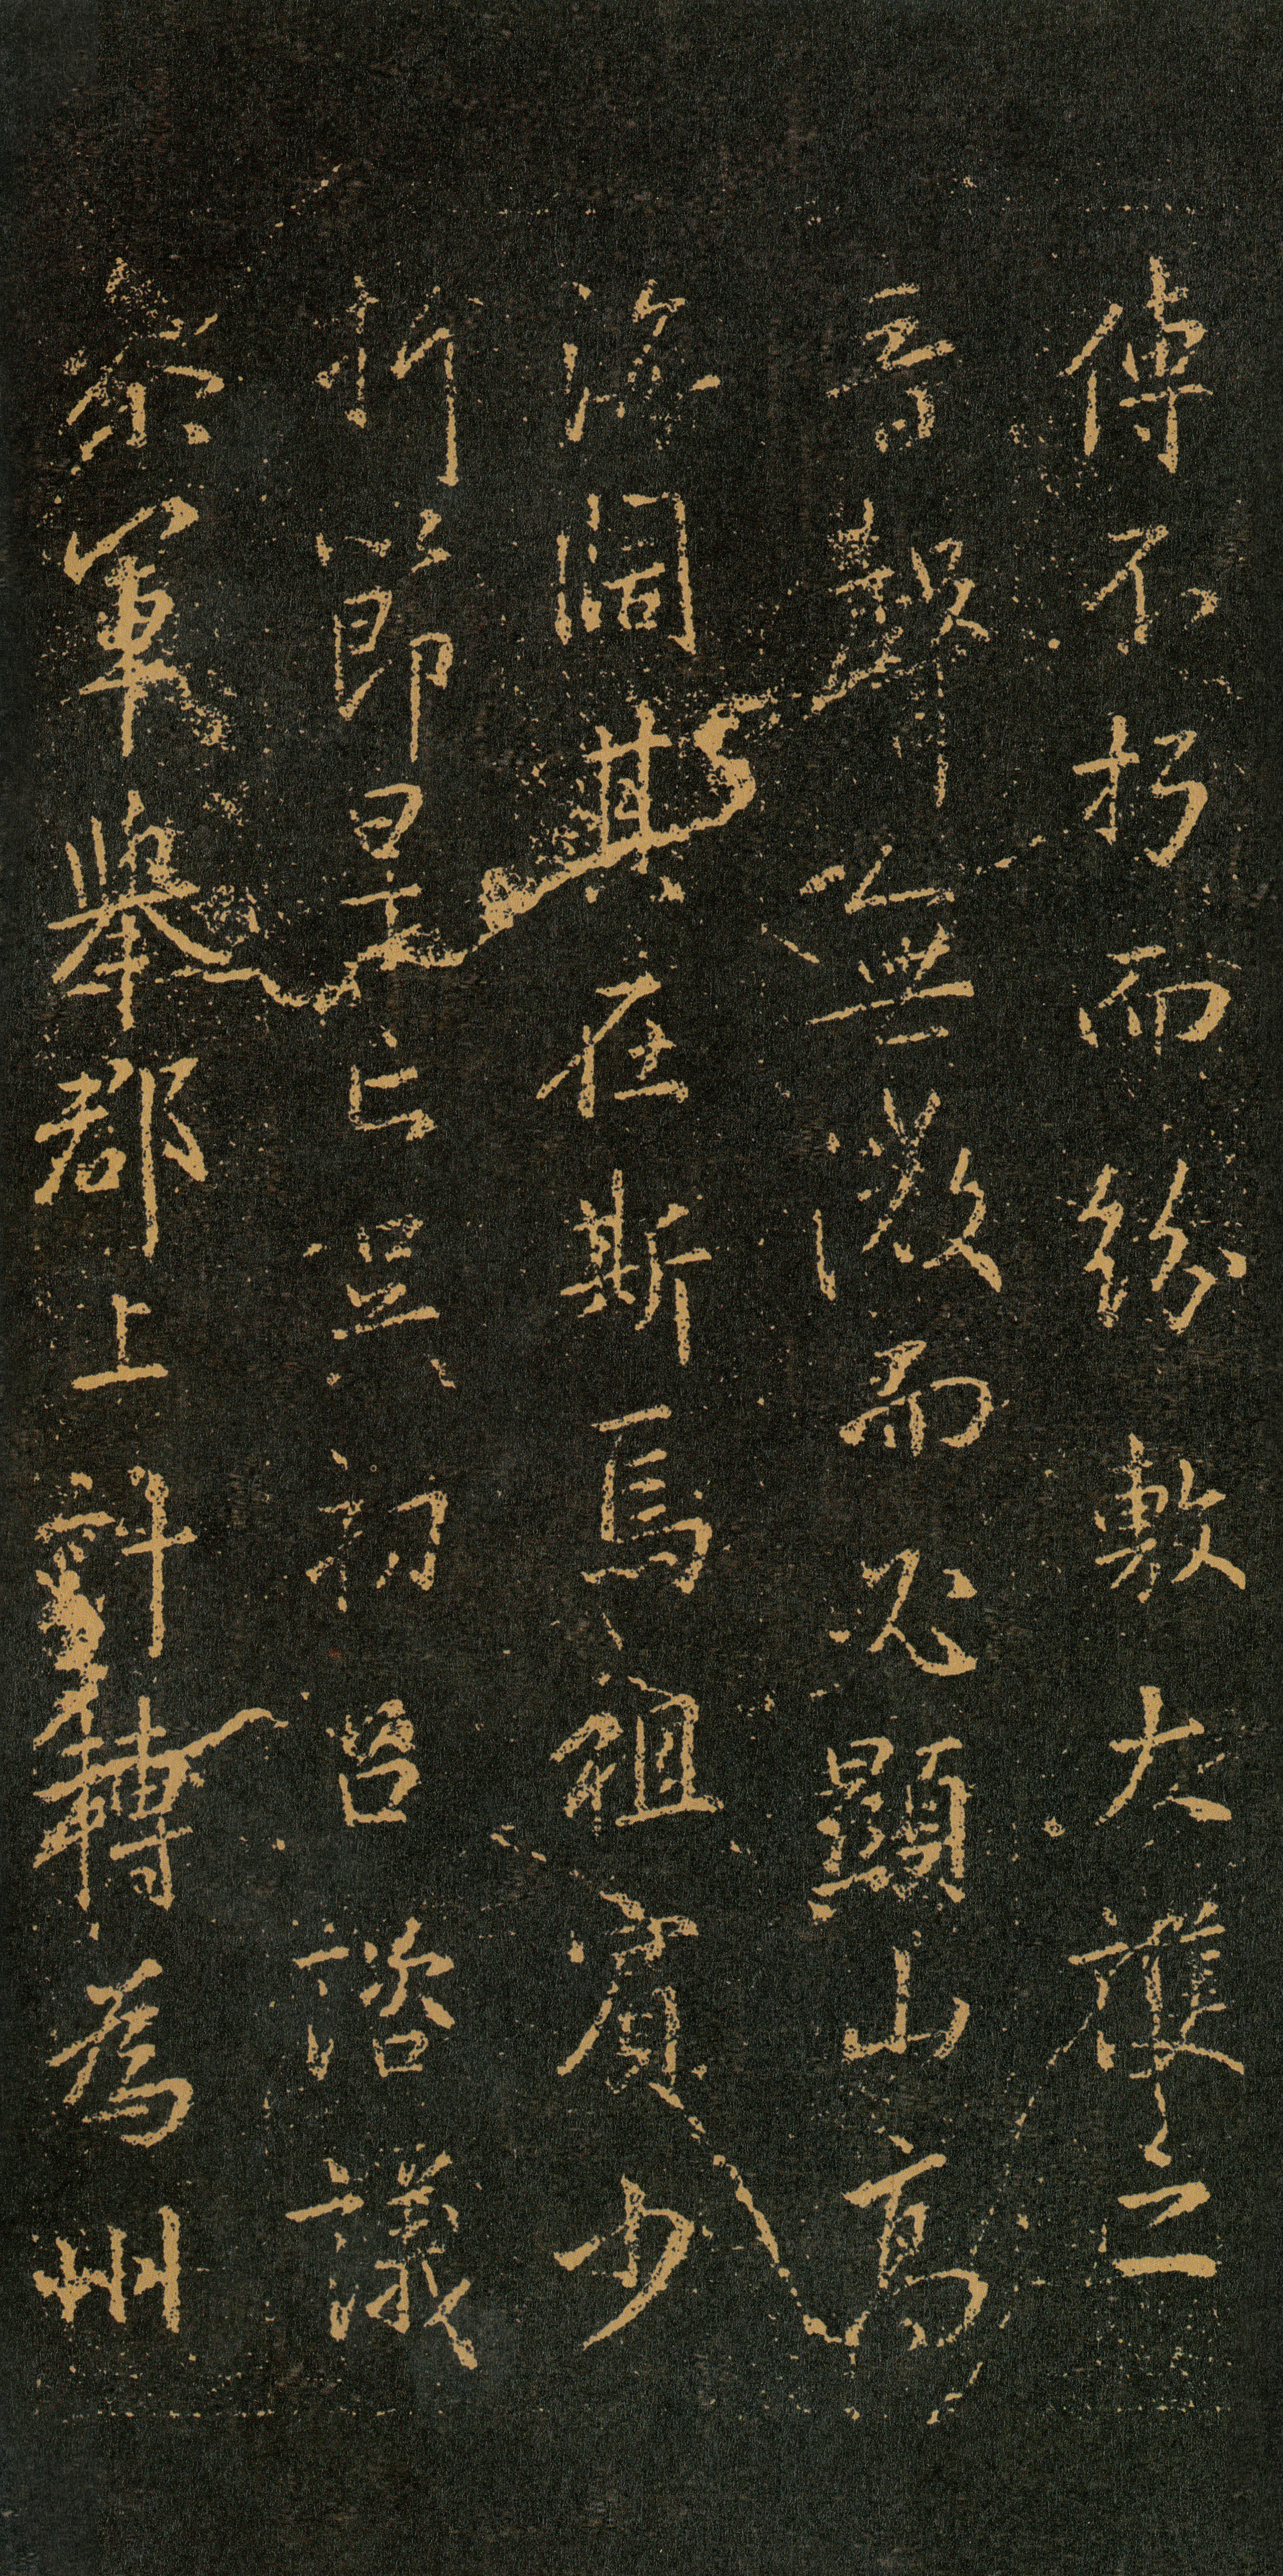 傳不朽而紛敷大護之
音聲無微而必顯山高
海闊其在斯焉祖賓少
折節星亡吳初召諮議
參軍舉郡上計轉為州